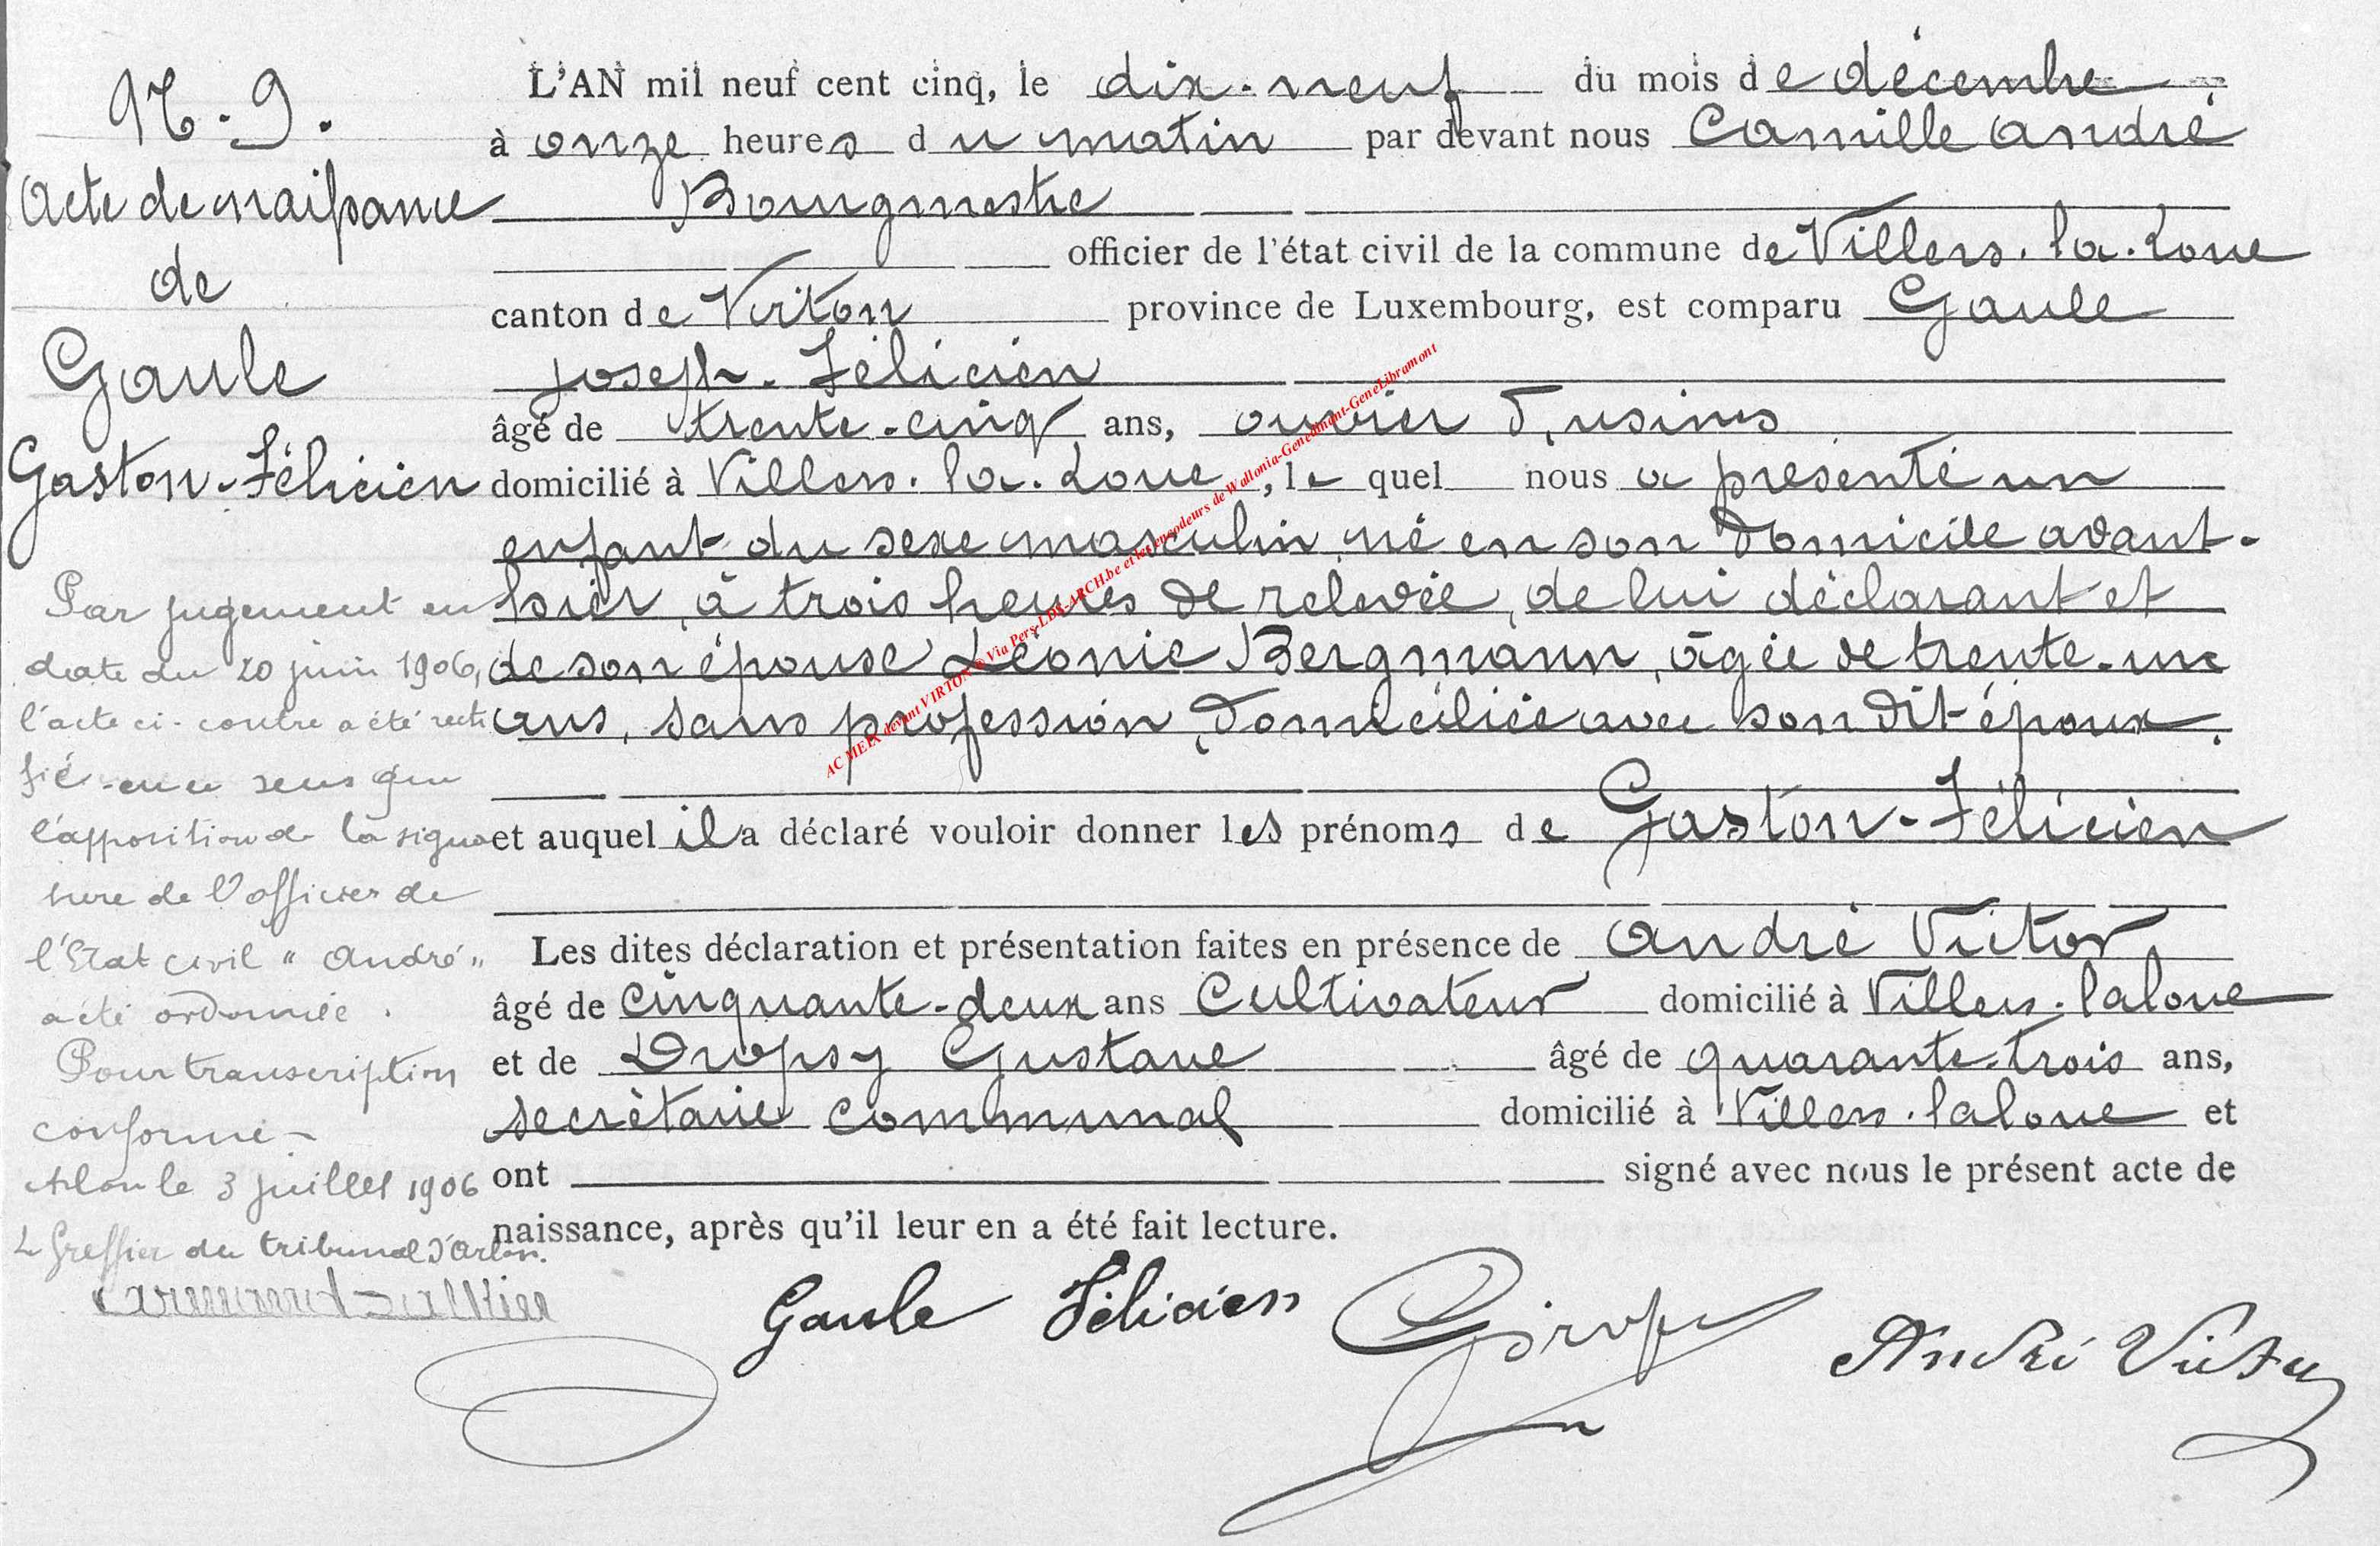 N. 9.
Acte de naissance
de
Gaule
Gaston-Félicien
Par jugement en
date du 20 juin 1906,
l'acte ci-contre a été recti
fié en ce sens que
l'apposition de la signa
ture de l'officier de
l'Etat civil " André "
a été ordonnée.
Pour transcription
conforme -
Arlon le 3 juillet 1906
L Greffier du tribunal d'Arlon.
L'AN mil neuf cent cinq, le dix-neuf du mois de décembre
à onze heures du matin par devant nous Camille André
Bourgmestre
officier de l'état civil de la commune de Villers-la-Loue
canton de Virton province de Luxembourg, est comparu Gaule
Joseph-Félicien
âgé de trente-cinq ans, ouvrier d'usines
domicilié à Villers-la-Loue, le quel nous a présenté un
enfant du sexe masculin, né en son domicile avant-
hier, à trois heures de relevée, de lui déclarant et
de son épouse Léonie Bergmann, âgée de trente-un
ans, sans profession, domiciliée avec son dit époux.
et auquel il a déclaré vouloir donner les prénoms de Gaston-Félicien
Les dites déclaration et présentation faites en présence de André Victor
âgé de cinquante-deux ans Cultivateur domicilié à Villers-laloue
et de Dropsy Gustave âgé de quarante-trois ans,
secrétaire communal domicilié à Villers-laloue et
ont signé avec nous le présent acte de
naissance, après qu'il leur en a été fait lecture.
Gaule Félicien GDropsy André Victor
AC MEIX devant VIRTON Via Pers-LDS-ARCH.be et les encodeurs de Wallonia-Genedinant-GeneLibramont